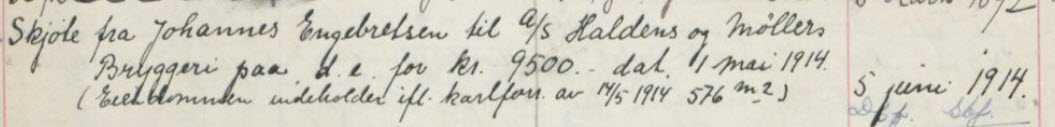 Skjøte fra Johannes Engebretsen til A/S Haldens og Møllers
Bryggeri paa d. e. for kr. 9500.- dat. 1 mai 1914.
(Eiendommen indeholder ifl. kartforr. av 14/5 1914 576 m2) 5 juni 1914.